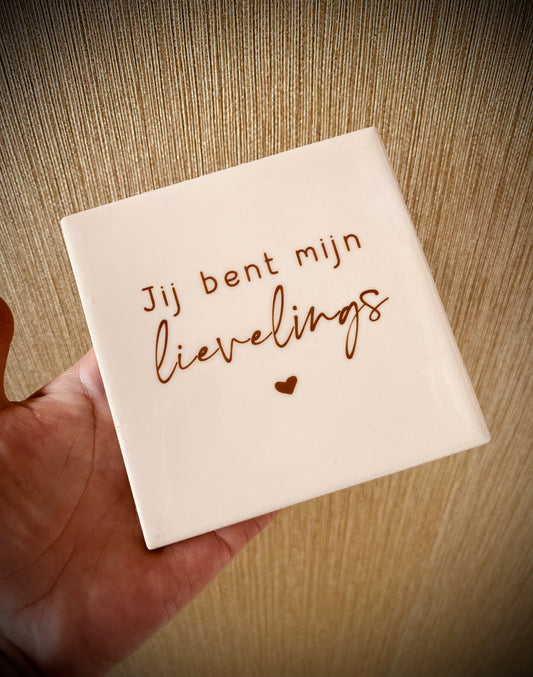 Jij bent mijn
lievelings